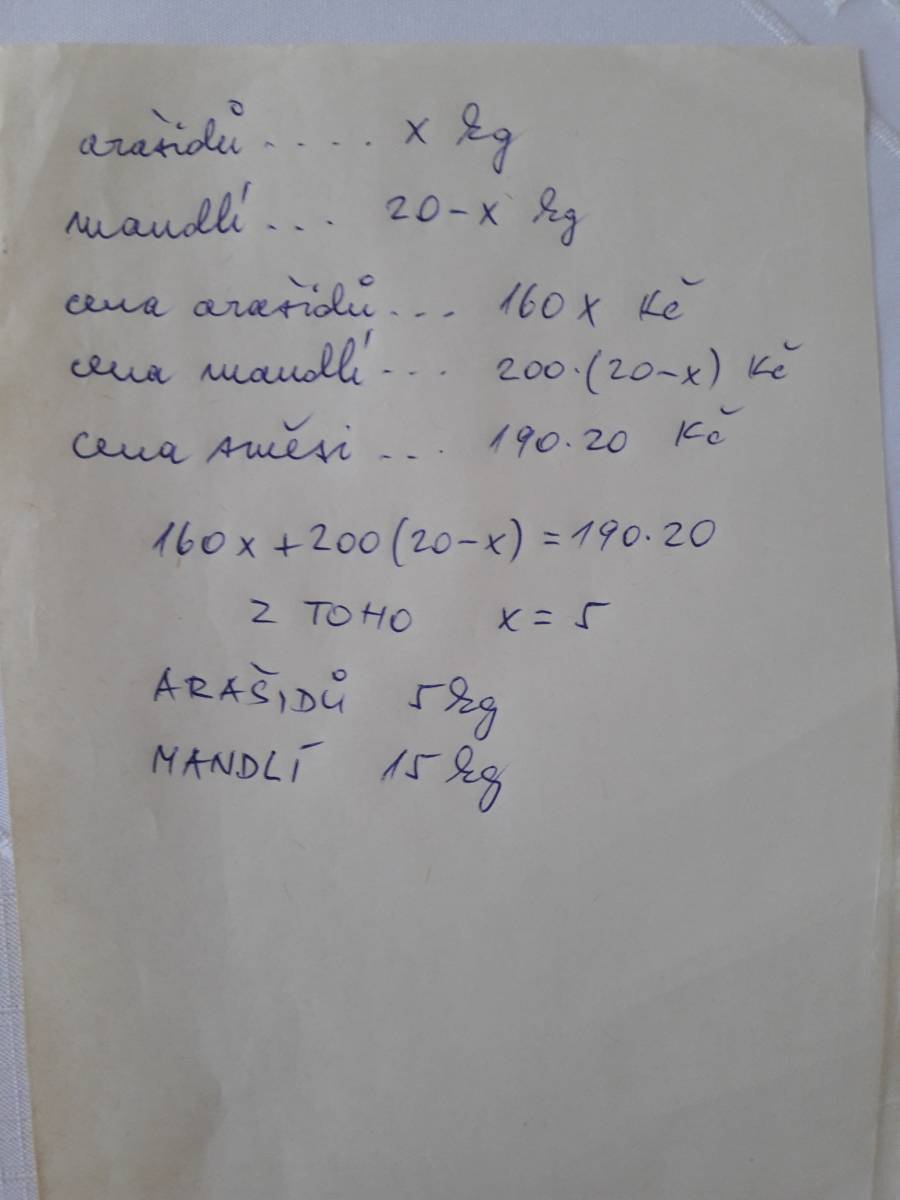 arašidů .... x kg
mandlí ... 20-x kg
cena arašidů ... 160 x Kč
cena mandlí ... 200·(20-x) Kč
cena směsi ... 190.20 Kč
160x+200(20-x)=190.20
Z TOHO x = 5
ARAŠIDŮ 5 kg
MANDLÍ 15 kg